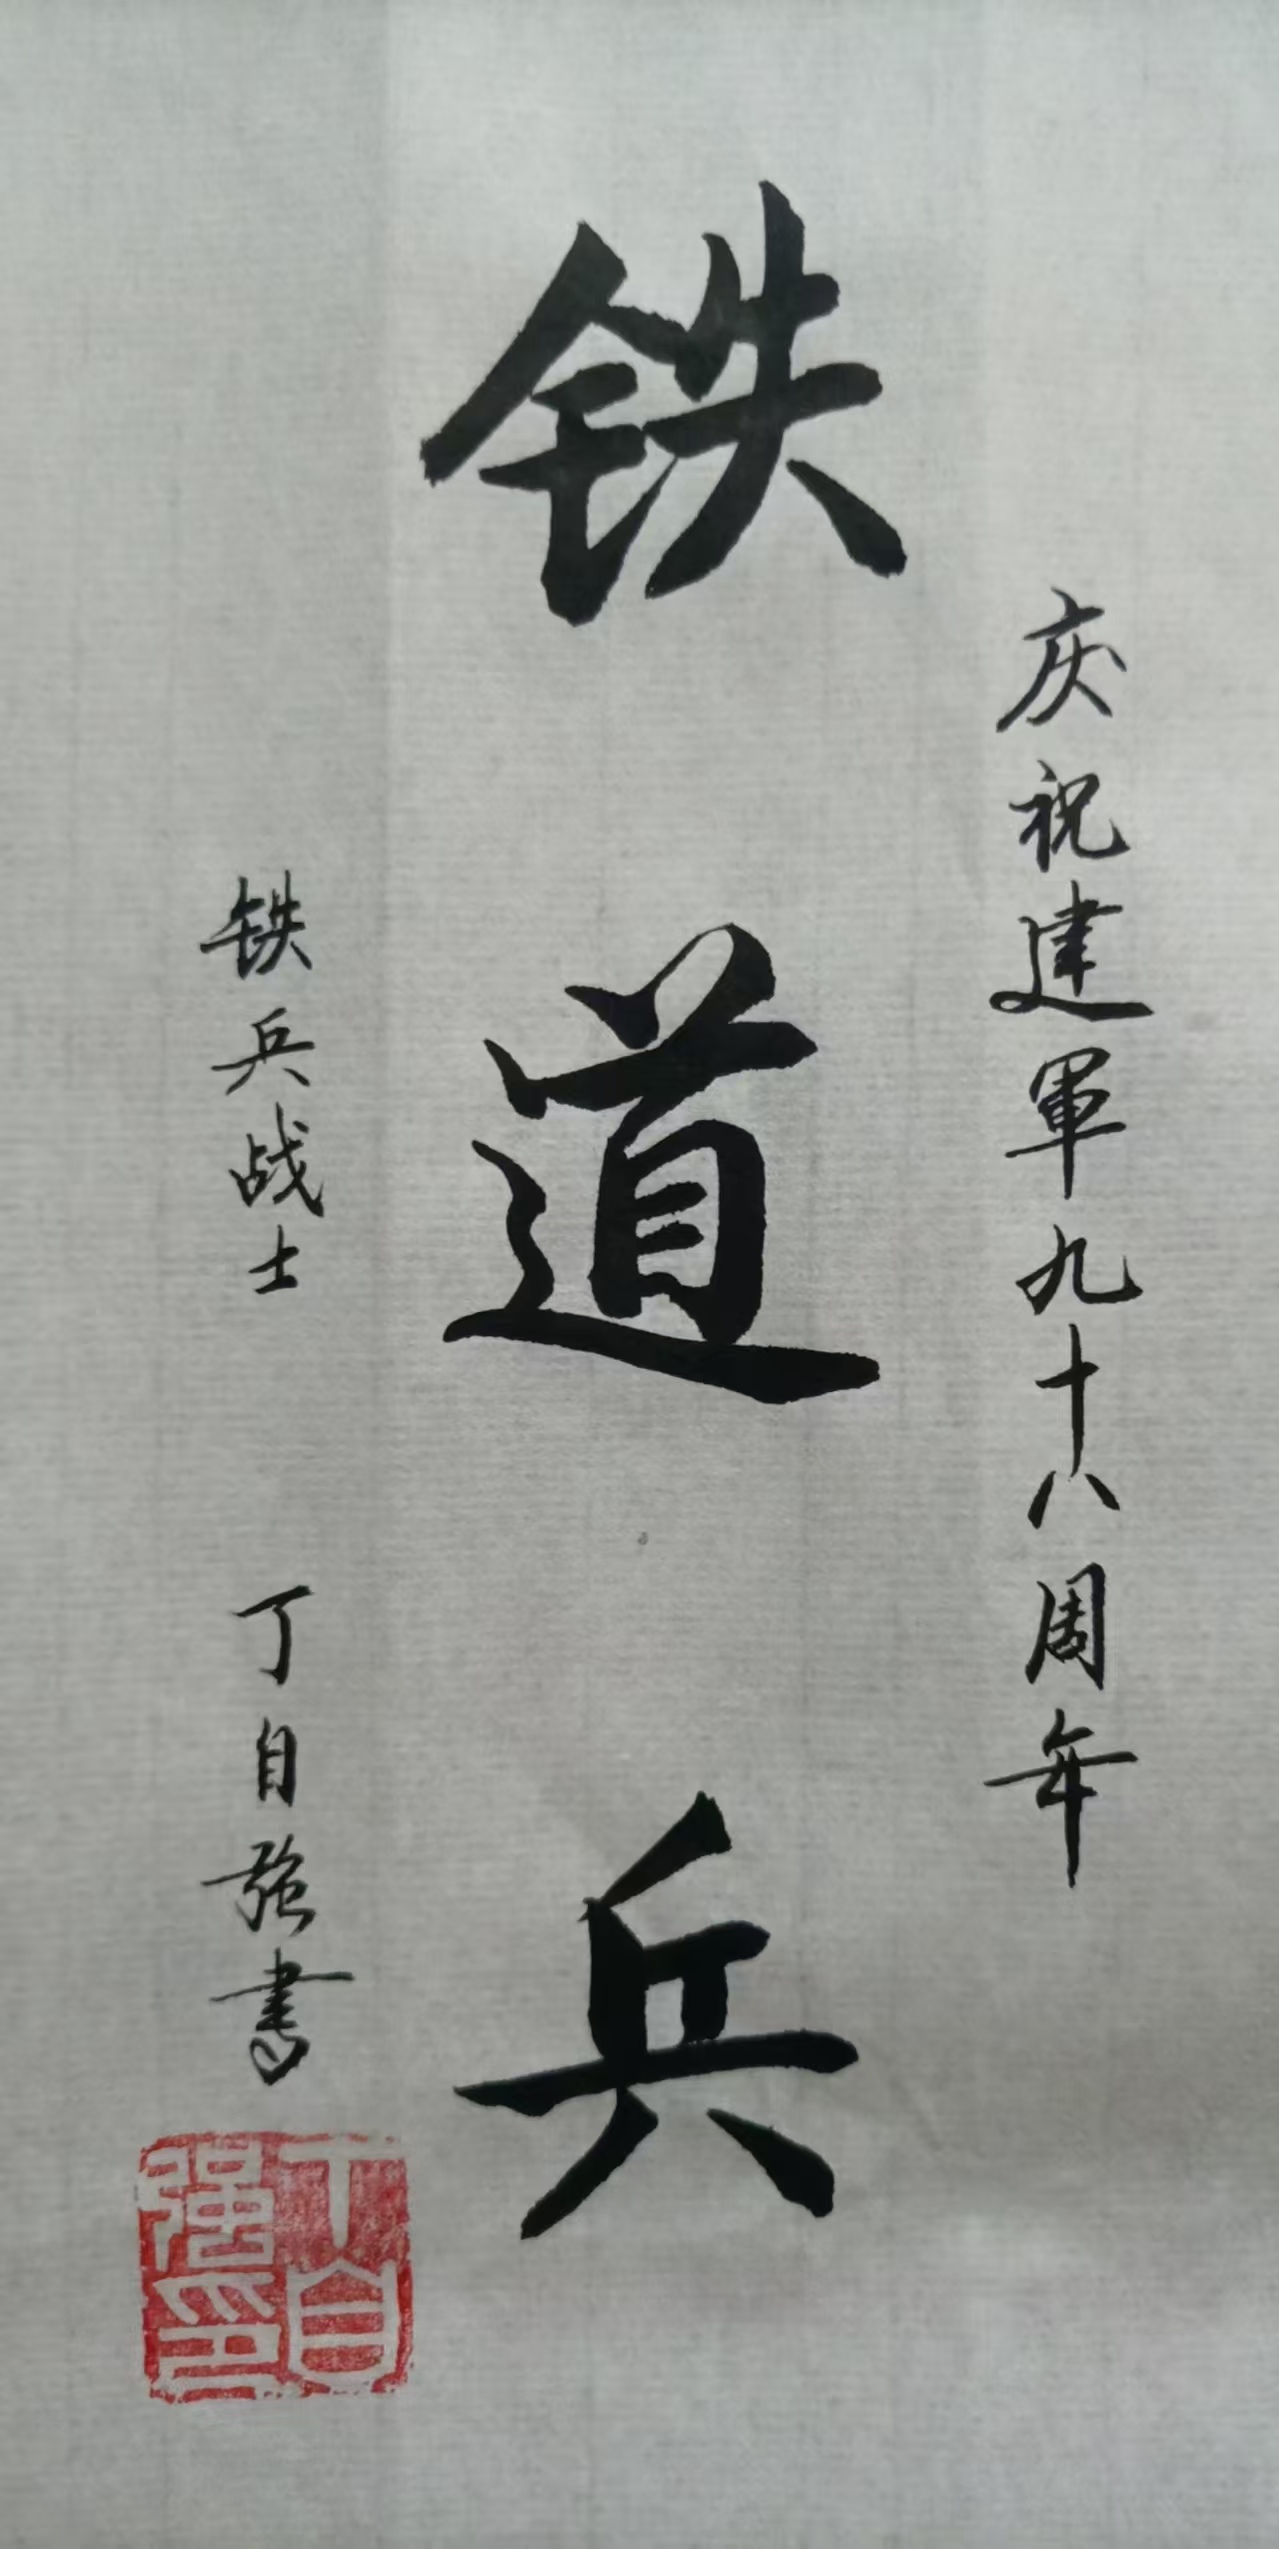 庆祝建軍九十八周年
铁道兵
铁兵战士 丁自強書
丁自强印